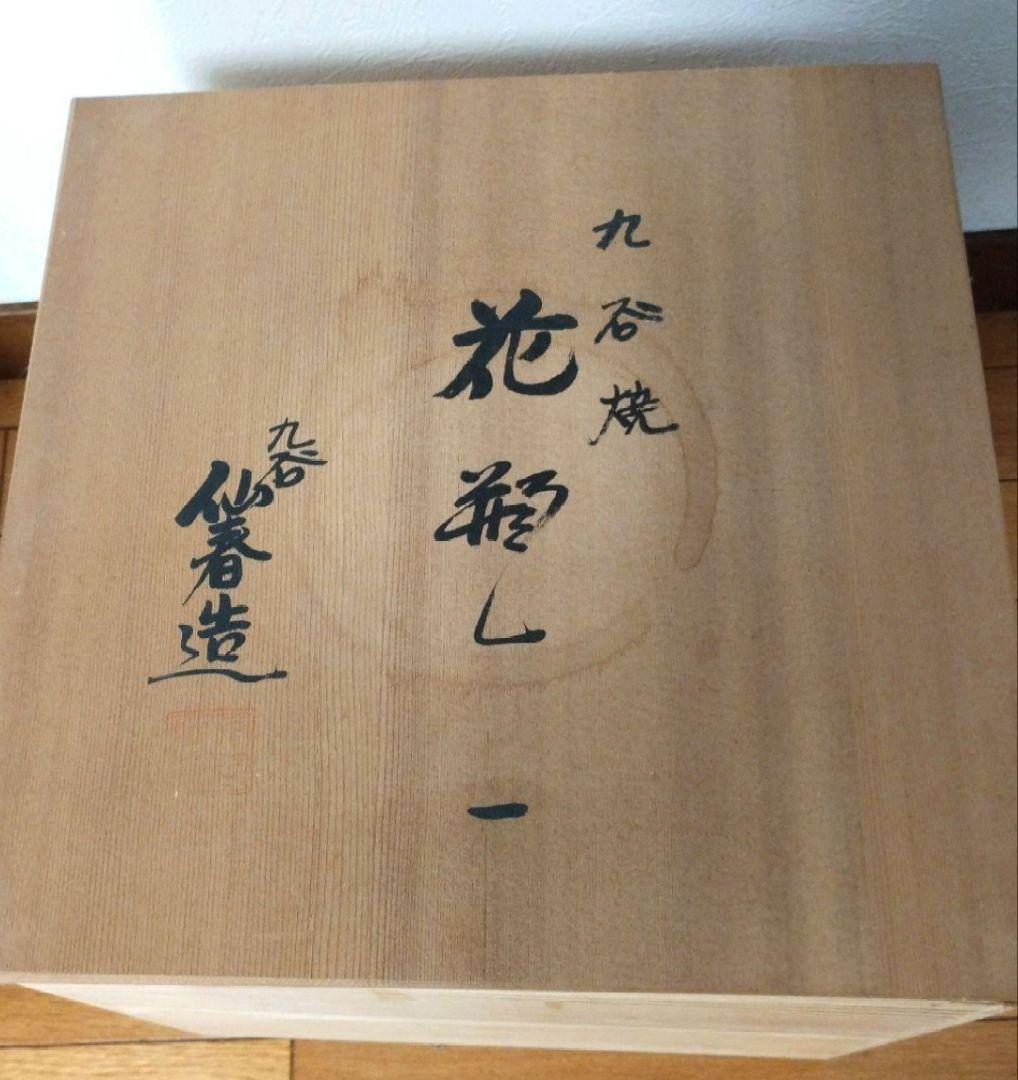 九谷焼
花瓶し
一
九谷
仙春造